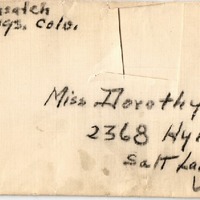 gs. Colo.
Miss Dorothy
2368 Hy
Salt La